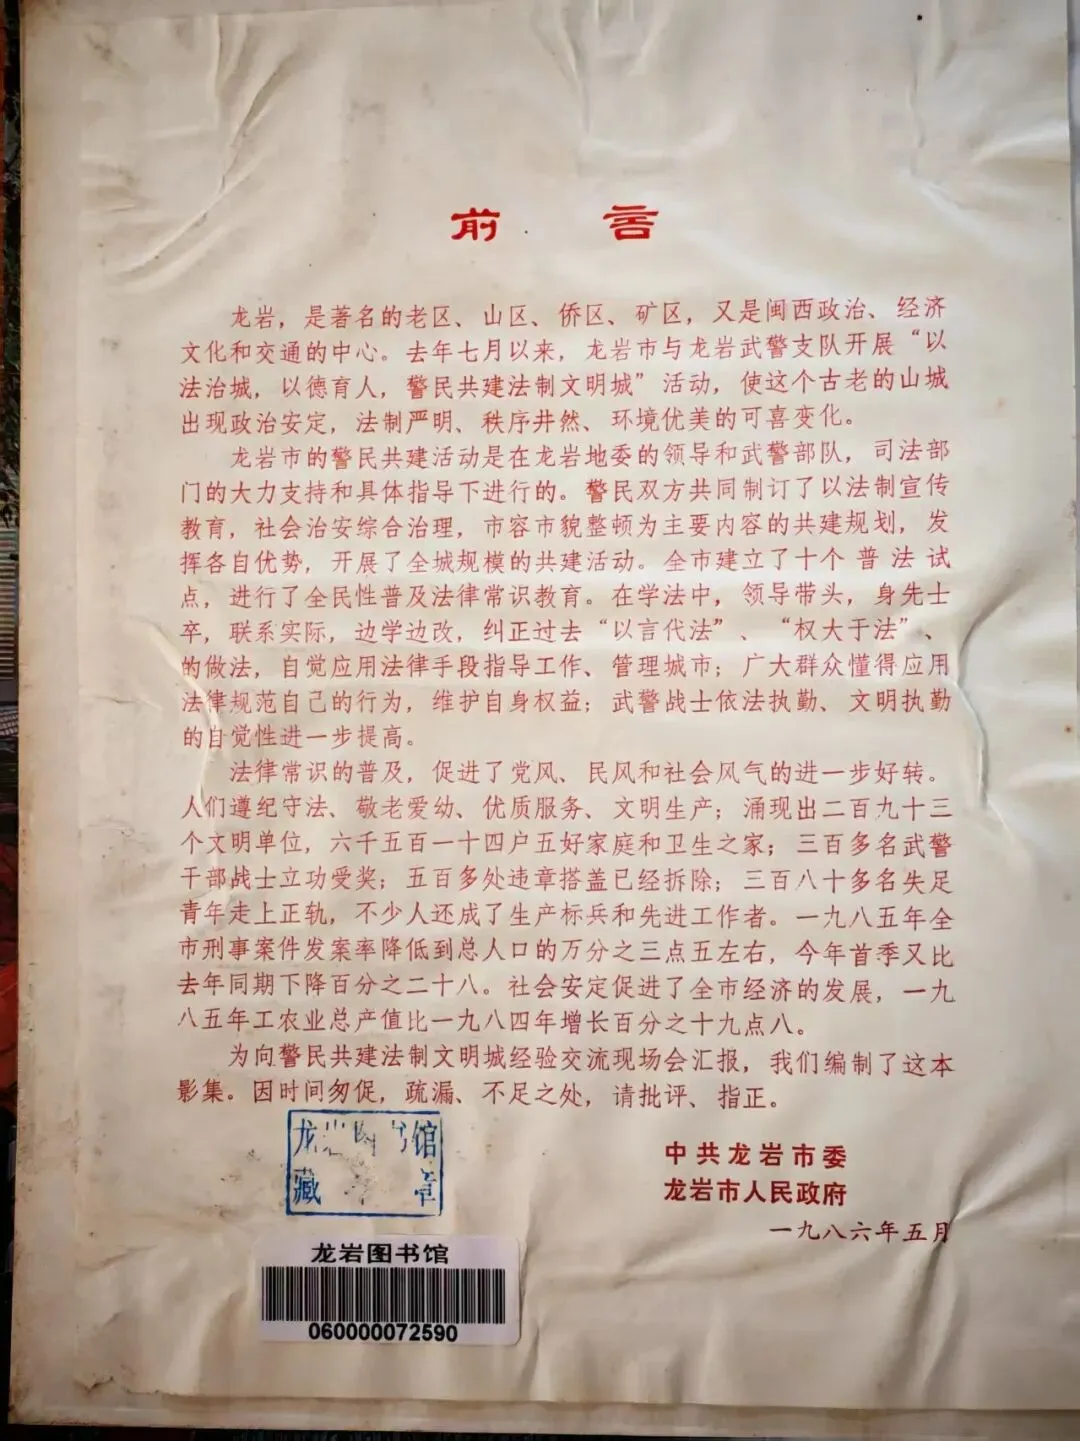 前言
龙岩，是著名的老区、山区、侨区、矿区，又是闽西政治、经济
文化和交通的中心。去年七月以来，龙岩市与龙岩武警支队开展“以
法治城，以德育人，警民共建法制文明城”活动，使这个古老的山城
出现政治安定，法制严明、秩序井然、环境优美的可喜变化。
龙岩市的警民共建活动是在龙岩地委的领导和武警部队，司法部
门的大力支持和具体指导下进行的。警民双方共同制订了以法制宣传
教育，社会治安综合治理，市容市貌整顿为主要内容的共建规划，发
挥各自优势，开展了全城规模的共建活动。全市建立了十个普法试
点，进行了全民性普及法律常识教育。在学法中，领导带头，身先士
卒，联系实际，边学边改，纠正过去“以言代法”、“权大于法”、
的做法，自觉应用法律手段指导工作、管理城市；广大群众懂得应用
法律规范自己的行为，维护自身权益；武警战士依法执勤、文明执勤
的自觉性进一步提高。
法律常识的普及，促进了党风、民风和社会风气的进一步好转。
人们遵纪守法、敬老爱幼、优质服务、文明生产；涌现出二百九十三
个文明单位，六千五百一十四户五好家庭和卫生之家；三百多名武警
干部战士立功受奖；五百多处违章搭盖已经拆除；三百八十多名失足
青年走上正轨，不少人还成了生产标兵和先进工作者。一九八五年全
市刑事案件发案率降低到总人口的万分之三点五左右，今年首季又比
去年同期下降百分之二十八。社会安定促进了全市经济的发展，一九
八五年工农业总产值比一九八四年增长百分之十九点八。
为向警民共建法制文明城经验交流现场会汇报，我们编制了这本
影集。因时间匆促，疏漏、不足之处，请批评、指正。
中共龙岩市委
龙岩市人民政府
一九八六年五月
龙岩图书馆
藏章
龙岩图书馆
060000072590